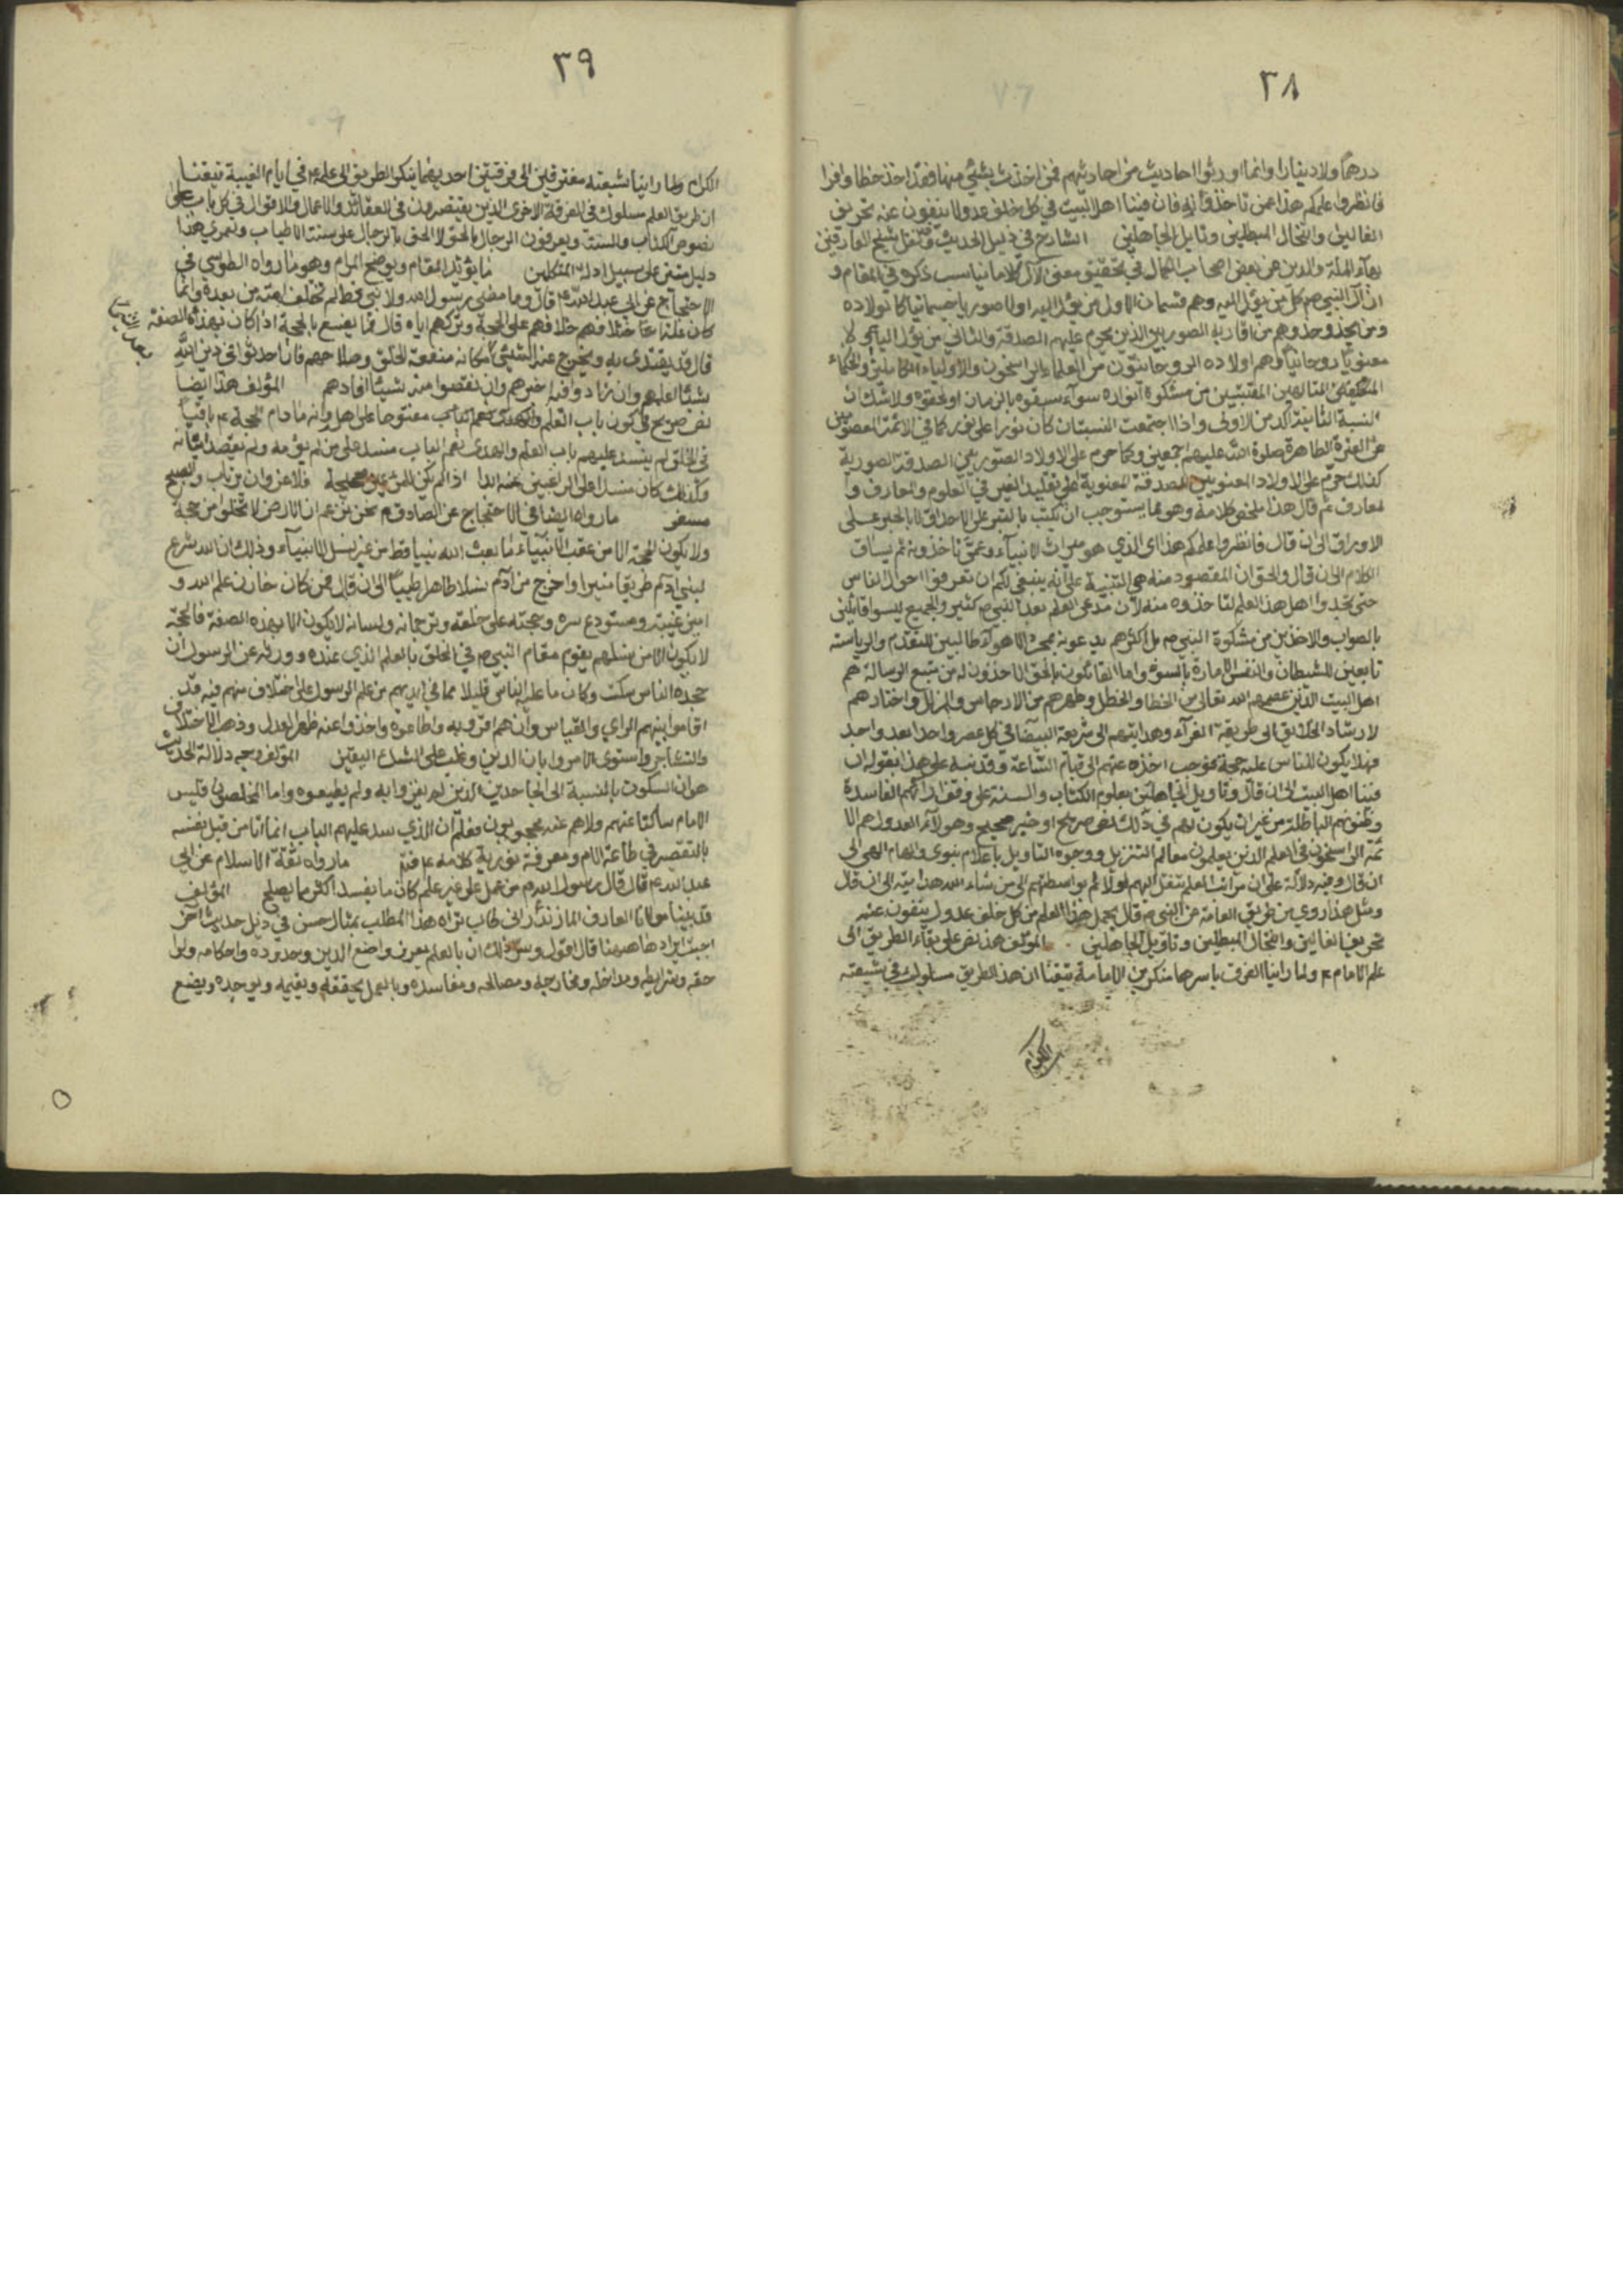 ٣٨
درهماً ولا دينارا وانما اورثوا احاديث من احاديثهم فمن اخذ بشيئ منها فقد اخذ حظا وافرا
فانظروا علمكم هذا عمن تاخذونه فان فينا اهل البيت في كل خلف عدولا ينفون عنه تحريف
الغالين وانتحال المبطلين وتاويل الجاهلين الشارح في ذيل الحديث وقد نقل شيخ العارفين
بهاء الملة والدين عن بعض اصحاب الكمال في تحقيق معنى الآل كلاما يناسب ذكره في المقام و
ان آل النبي ص كل من يؤل اليه وهم قسمان الاول من يؤل اليه اولا صوريا جسمانيا كاولاده
ومن يحذو حذوهم من اقاربه الصوريين الذين يحرم عليهم الصدقة والثاني من يؤل اليه
معنويا روحانيا وهم اولاده الروحانيون من العلماء الراسخون والاولياء الكاملين والحكماء
المتالهين المقتبسين من مشكوة انواره سواء سبقوه بالزمان او لحقوه ولاشك ان
النسبة الثانية اكد من الاولى واذا اجتمعت النسبتان كان نورا على نور كما في الائمة المعصومين
من العترة الطاهرة صلوة الله عليهم اجمعين وكما حرم على الاولاد الصوريين الصدقة الصورية
كذلك حرم على الاولاد المعنويين الصدقة المعنوية اعني تقليد الغير في العلوم والمعارف و
لمعارف ثم قال هذا ملخص كلامه وهو مما يستوجب ان يكتب بالتبر على الاحداق لا بالحبر على
الاوراق الى ان قال فانظروا علمكم هذا اي الذي هو ميراث الانبياء وعمن تاخذونه ثم يساق
الكلام الى ان قال والحق ان المقصود منه هي التنبية على انه ينبغي لكم ان تعرفوا احوال الناس
حتى تجدوا اهل هذا العلم لتاخذوه منه لان مدعى العلم بعد النبي ص كثير والجميع ليسوا قائلين
بالصواب والاخذين من مشكوة النبي ص بل اكثرهم يدعونه بمجرد الاهواء طالبين للتقدم والرياسة
تابعين للشيطان والنفس الامارة بالسوء واما القائلون بالحق الاخذون له من منبع الرسالة هم
اهل البيت الذين عصمهم الله تعالى من الخطا والخطل وطهرهم من الارجاس والزلل واختارهم
لارشاد الخلايق الى طريقة الغراء وهدايتهم الى شريعة البيضا في كل عصر واحدا بعد واحد
فهلا يكون للناس عليه حجة بموجب اخذه عنهم الى قيام الساعة وقد نبه على هذا بقوله ان
فينا اهل البيت الى ان قال وتاويل الجاهلين بعلوم الكتاب والسنة على وفق ارائهم الفاسدة
وظنونهم الباطلة من غير ان يكون لهم في ذلك نص صريح او خبر صحيح وهولاء العدول هم الا
ئمة الراسخون في العلم الذين يعلمون معالم التنزيل ووجوه التاويل باعلام نبوى والهام الهي الى
ان قال وفيه دلالة على ان ميراث العلم ينتقل اليهم اولا ثم بواسطتهم الى من شاء الله هدايته الى ان قال
ومثل هذا روي من طريق العامة عن النبي ص قال يحمل هذا العلم من كل خلف عدول ينفون عنه
تحريف الغالين وانتحال المبطلين وتاويل الجاهلين المؤلف هذا نص على بقاء الطريق الى
علم الامام ع ولما راينا الفرق باسرها منكرين الامامة تيقنا ان هذا الطريق مسلوك في شيعته
الكرام
٣٩
الكرام ولما راينا شيعته مفترقين الى فرقتين احديهما ينكر الطريق الى علمه ع في ايام الغيبة تيقنا
ان طريق العلم مسلوك في الفرقة الاخرى الذين يقتصرون في العقائد والاعمال والاقوال في كل باب على
نصوص الكتاب والسنة ويعرفون الرجال بالحق لا الحق بالرجال على سنة الاطياب ولعمري هذا
دليل متقن على سبيل ادلة المتكلمين ما يؤيد المقام ويوضح المرام وهو ما رواه الطوسي في
الاحتجاج عن ابي عبد الله ع قال وما مضى رسول الله ولا نبي قط الا تختلف امته من بعده وانما
كان علة اختلافهم خلافهم على الحجة وتركهم اياه قال فما يصنع بالحجة اذا كان بهذه الصفة
قال قد يقتدى به ويخرج عنه الشيئ مكانه منفعة الخلق وصلاحهم فان احدثوا في دين الله
شيئا اعلمهم وان زادوا فيه اخبرهم وان نقصوا منه شيئا افادهم المؤلف هذا ايضا
نص صريح في كون باب العلم مفتوحا على اهل وانه مادام الحجة ع باقيا
في الخلق لم ينسد عليهم باب العلم والهدى نعم الباب منسد على من لم يؤمه ولم يقصد اتيانه
وكذلك كان منسدا على الراغبين عنه ابدا اذا لم يكن للمرء عين صحيحة فلا غرو ان يرتاب والصبح
مسفر ما رواه ايضا في الاحتجاج عن الصادق ع نحن نزعم ان الارض لا تخلو من حجة
ولا يكون الحجة الا من عقب الانبياء ما بعث الله نبيا قط من غير نسل الانبياء وذلك ان الله شرع
لبني ادم طريقا منيرا واخرج من ادم نسلا طاهرا طيبا الى ان قال فمن كان خازن علم الله و
امين غيبه ومستودع سره وحجته على خلقه وترجمانه ولسانه لا يكون الا بهذه الصفة فالحجة
لا يكون الا من نسلهم يقوم مقام النبي ص في الخلق بالعلم الذي عنده وورثه عن الرسول ان
جحده الناس سكت وكان ما عليه الناس قليلا مما في ايديهم من علم الرسول على اختلاف منهم فيه قد
اقاموا بينهم الراي والقياس وان هم اقروا به واطاعوه واخذوا عنه ظهر العدل وذهب الاختلاف
والتشاجر واستوى الامر وابان الدين وغلب على الشك اليقين المؤلف وجه دلالة الحديث
هو ان السكوت بالنسبة الى الجاحدين الذين لم يقروا به ولم يطيعوه واما المخلصون فليس
الامام ساكتا عنهم ولا هم عنه محجوبون فعلم ان الذي سد عليهم الباب انما اتا من قبل نفسه
بالتقصير في طاعة الامام ومعرفة نورية كلامه ع ما رواه ثقة الاسلام عن ابي
عبد الله ع قال قال رسول الله ص من عمل على غير علم كان ما يفسد اكثر مما يصلح المؤلف
قد بين مولانا العارف المازندراني طاب ثراه هذا المطلب بمثال حسن في ذيل حديث آخر
احببت ايرادها هيهنا قال اقول وسر ذلك ان بالعلم يعرف واضع الدين وحدوده واحكامه ولوا
حقه وشرايطه ومداخله ومخارجه ومصالحه ومفاسده وبالعمل يحققه ويقيمه ويوجده ويضع